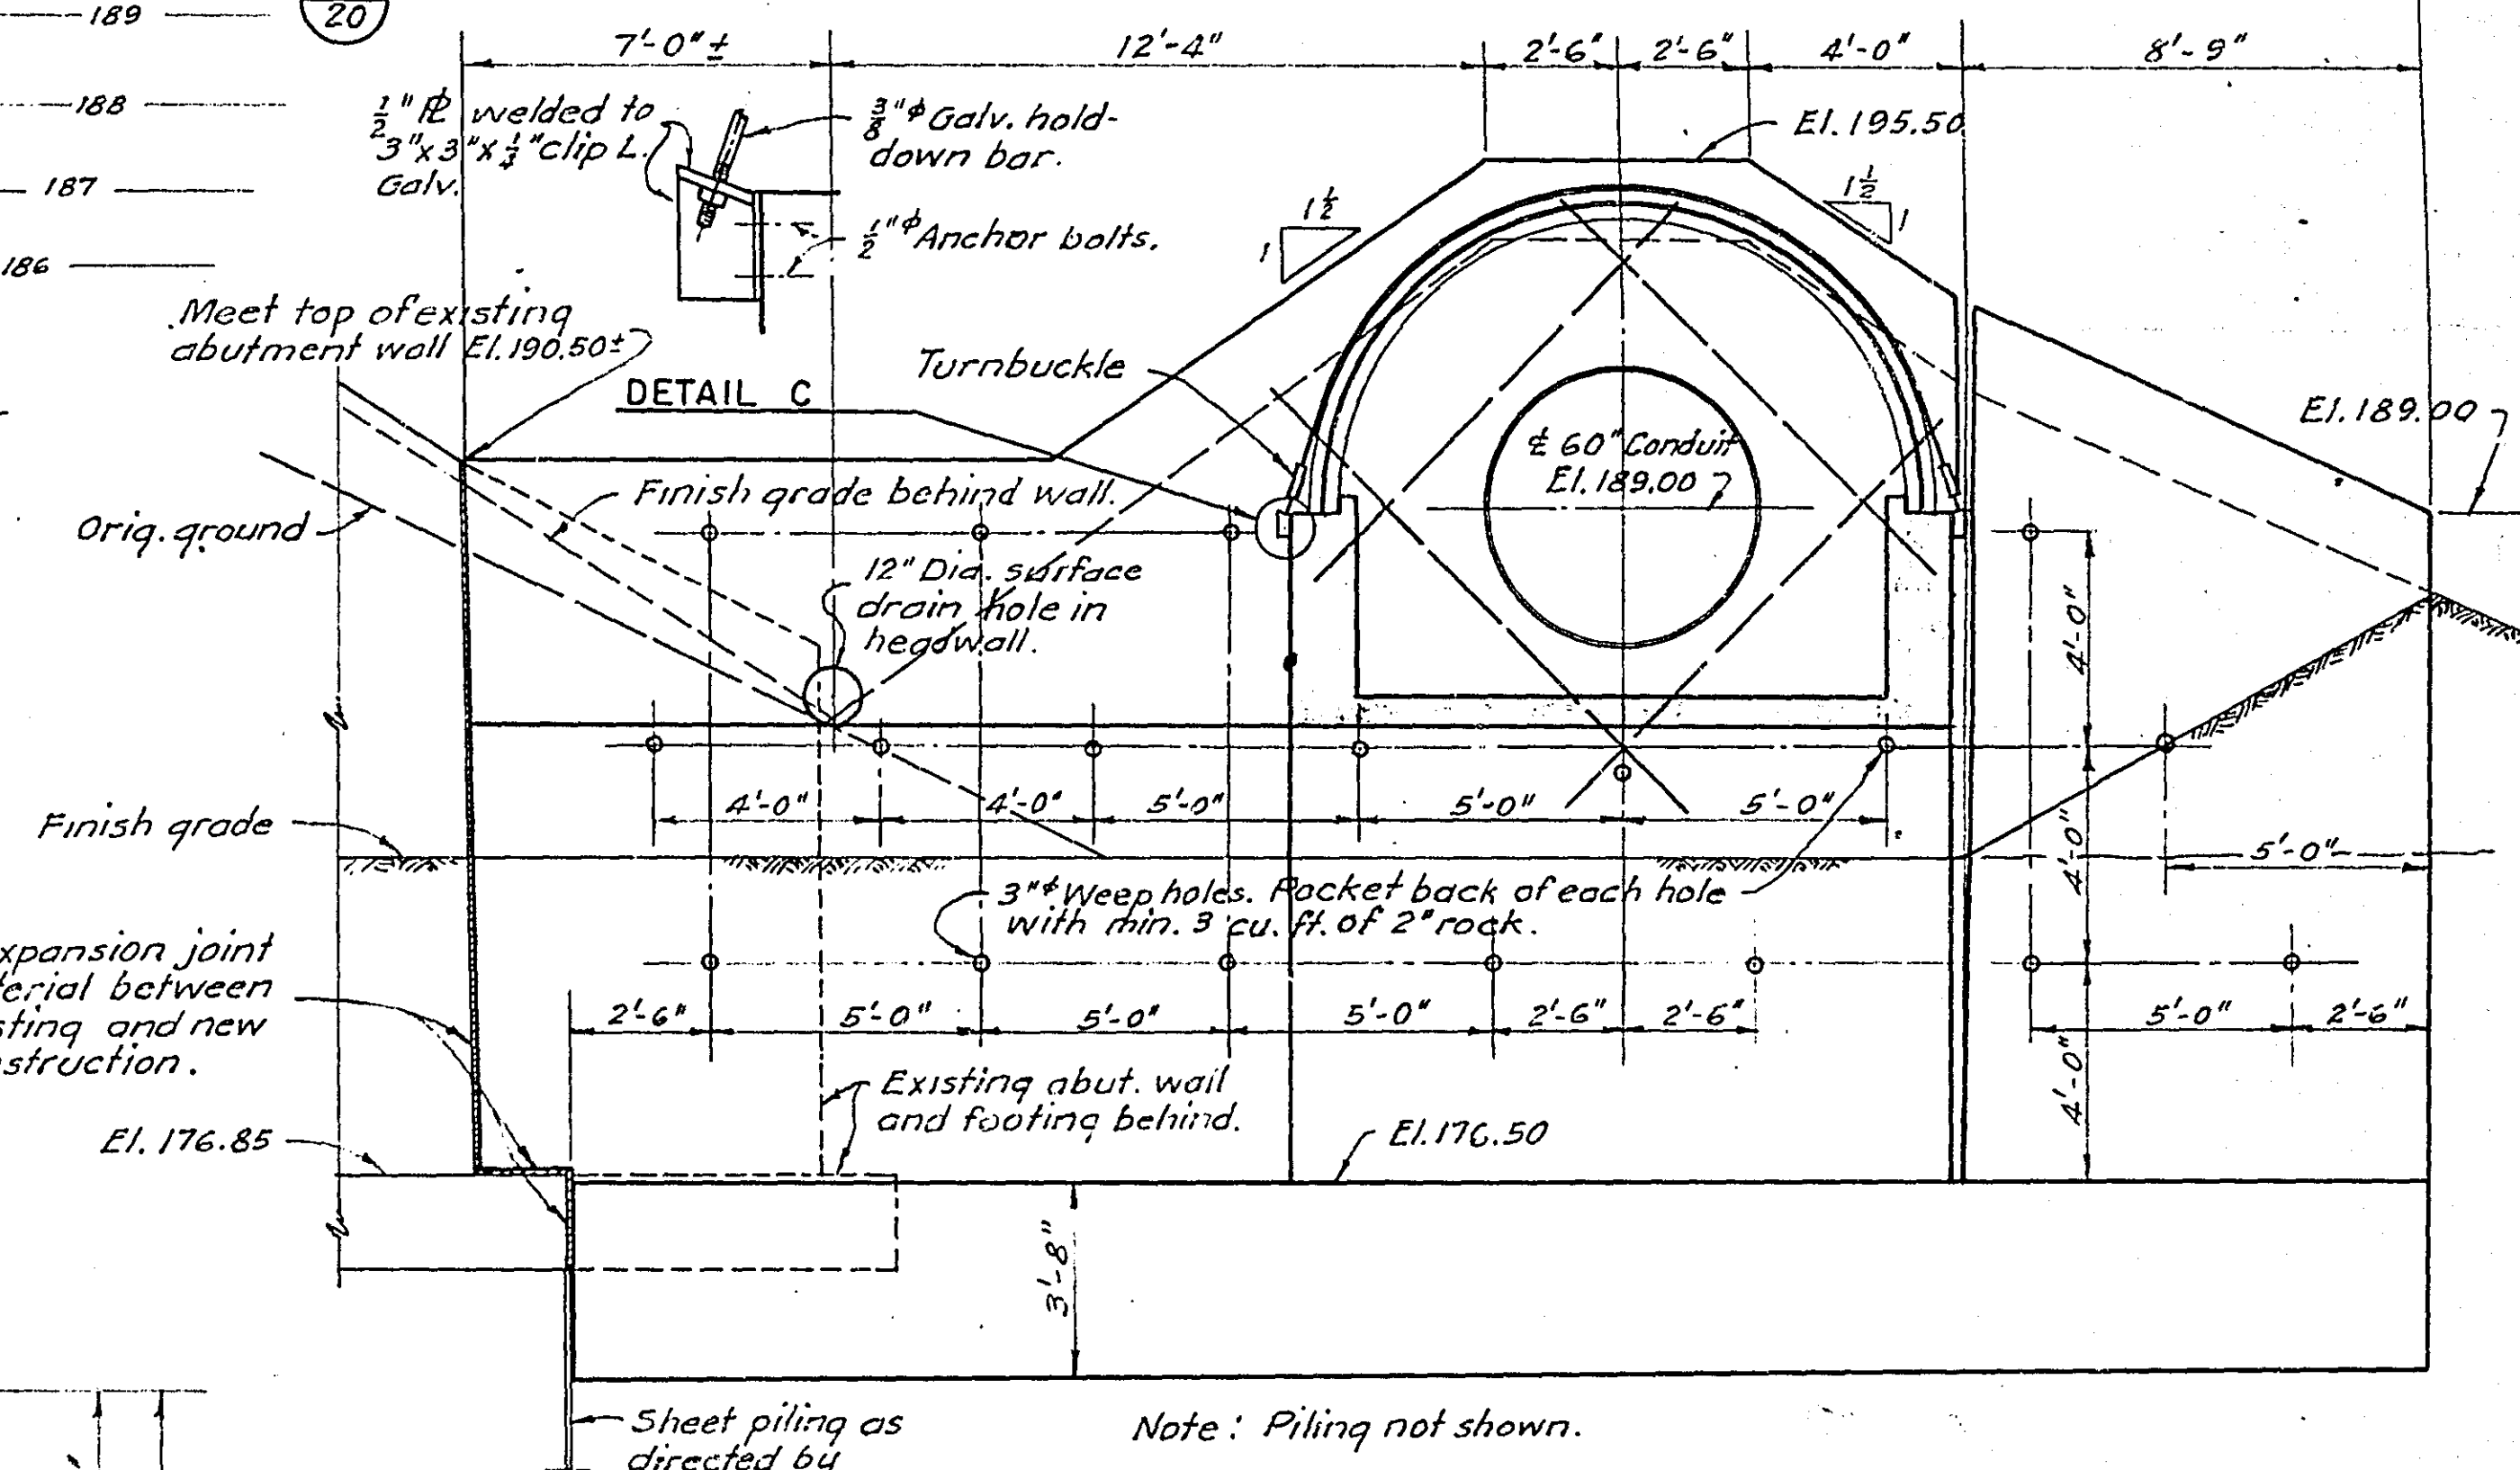 189
20
7'-0"±
12'-4"
2'-6"
2'-6"
4'-0"
8'-9"
188
187
186
1/2" ℄ welded to
3"x3"x1/4" clip L.
Galv.
3/8"ϕ Galv. hold-
down bar.
1/2"ϕ Anchor bolts.
El. 195.50
1 1/2
1
1 1/2
1
Meet top of existing
abutment wall El. 190.50±
DETAIL C
Turnbuckle
El. 189.00
℄ 60" Conduit
El. 189.00
Finish grade behind wall.
Orig. ground
12" Dia. surface
drain hole in
headwall.
4'-0"
4'-0"
4'-0"
5'-0"
5'-0"
5'-0"
Finish grade
4'-0"
5'-0"
3"ϕ Weep holes. Pocket back of each hole
with min. 3 cu. ft. of 2" rock.
xpansion joint
erial between
sting and new
nstruction.
2'-6"
5'-0"
5'-0"
5'-0"
2'-6"
2'-6"
5'-0"
2'-6"
4'-0"
Existing abut. wall
and footing behind.
El. 176.85
El. 176.50
3'-8"
Sheet piling as
directed by
Note: Piling not shown.